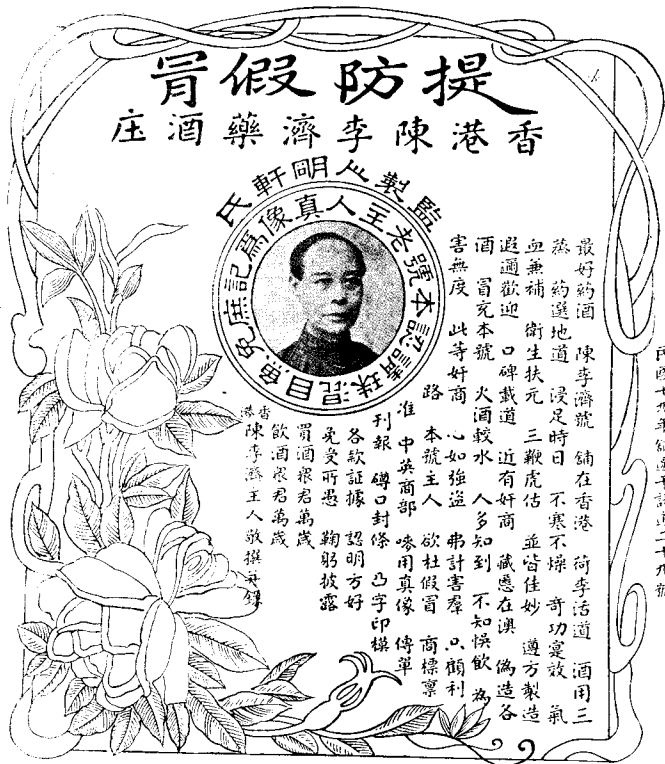 提防假冐
香港陳李濟藥酒庄
監製人明軒氏
請認本號老主人真像為記庶免魚目混珠
最好葯酒 陳李濟號 舖在香港 荷李活道 酒用三
蒸 葯選地道 浸足時日 不寒不燥 奇功寔效 氣
血兼補 衛生扶元 三鞭虎估 並皆佳妙 遵方製造
遐邇歡迎 口碑載道 近有奸商 藏慝在澳 偽造各
酒 冒充本號 火酒較水 人多知到 不知悞飲 為
害無度 此等奸商 心如強盜 弗計害羣 只顧利
路 本號主人 欲杜假冒 商標禀
准 中英商部 用真像 傳單
刊報 罇口封條 凸字印模
各欵証據 認明方好
免受所愚 鞠躬披露
買酒衆君萬歲
飲酒衆君萬歲
香港陳李濟主人敬撰并錄